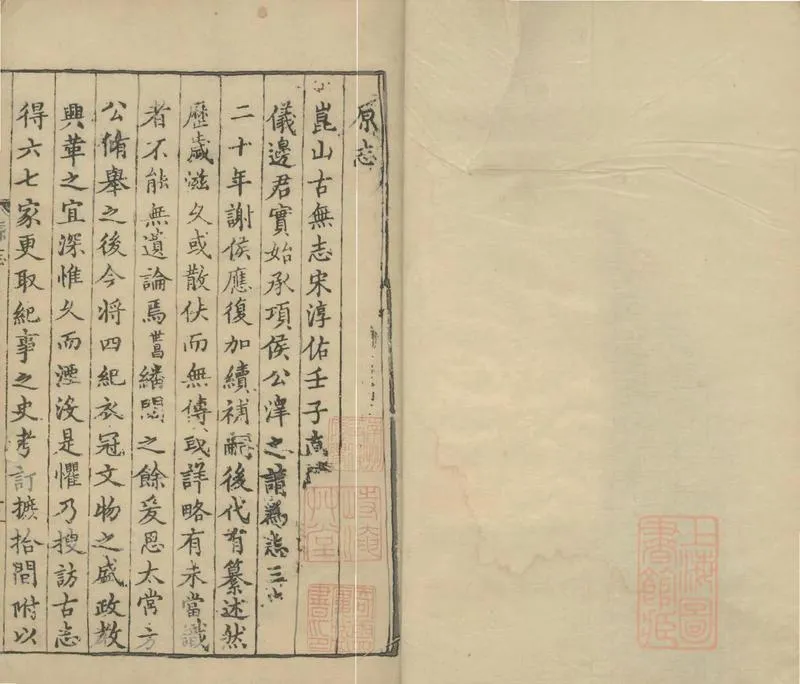 原志
崑山古無志宋淳佑壬子
儀邊君實始承項侯公澤之請爲志三
二十年謝侯應復加續補嗣後代有纂述然
歷歲滋久或散佚而無傳或詳略有未當識
者不能無遺論焉暠繙閱之餘爰思太常方
公脩舉之後今將四紀衣冠文物之盛政教
興革之宜深惟久而湮沒是懼乃搜訪古志
得六七家更取紀事之史考訂摭拾間附以
上海圖
書館藏